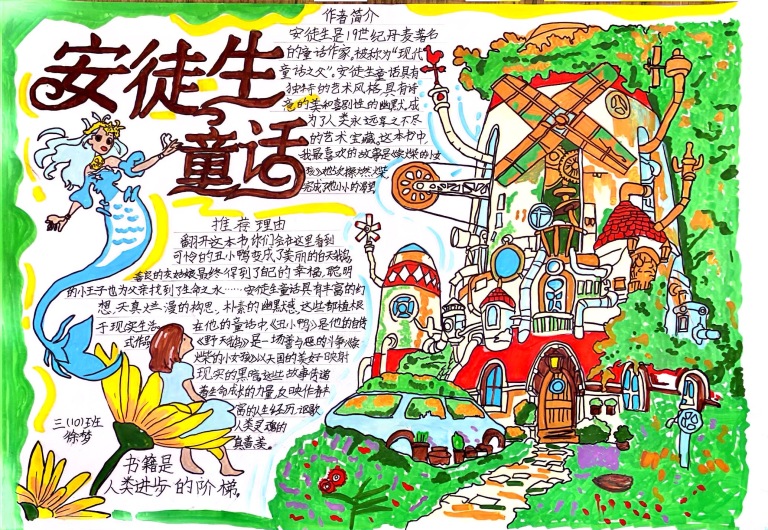 安徒生
童话
作者简介
安徒生是19世纪丹麦著名
的童话作家,被称为"现代
童话之父"。安徒生童话具有
独特的艺术风格,具有诗
意的美和喜剧性的幽默,成
为了人类永远享之不尽
的艺术宝藏。这本书中,
我最喜欢的故事是《卖火柴的小女
孩》
完成了她小小的愿望
推荐理由
翻开这本书,你们会在这里看到
可怜的丑小鸭变成了美丽的白天鹅,
善良的灰姑娘最终得到了自己的幸福,聪明
的小王子也为父亲找到了生命之水……安徒生童话具有丰富的幻
想,天真烂漫的构思,朴素的幽默感,这些都植根
于现实生活。
在他的童话中《丑小鸭》是他的自传
式作品,《野天鹅》是一场善与恶的斗争,《卖
火柴的小女孩》以天国的美好映射
现实的黑暗,这些故事传递
着生命成长的力量,反映作者丰
富的人生经历,讴歌
人类灵魂的
真善美。
三(10)班
徐梦
书籍是
人类进步的阶梯。